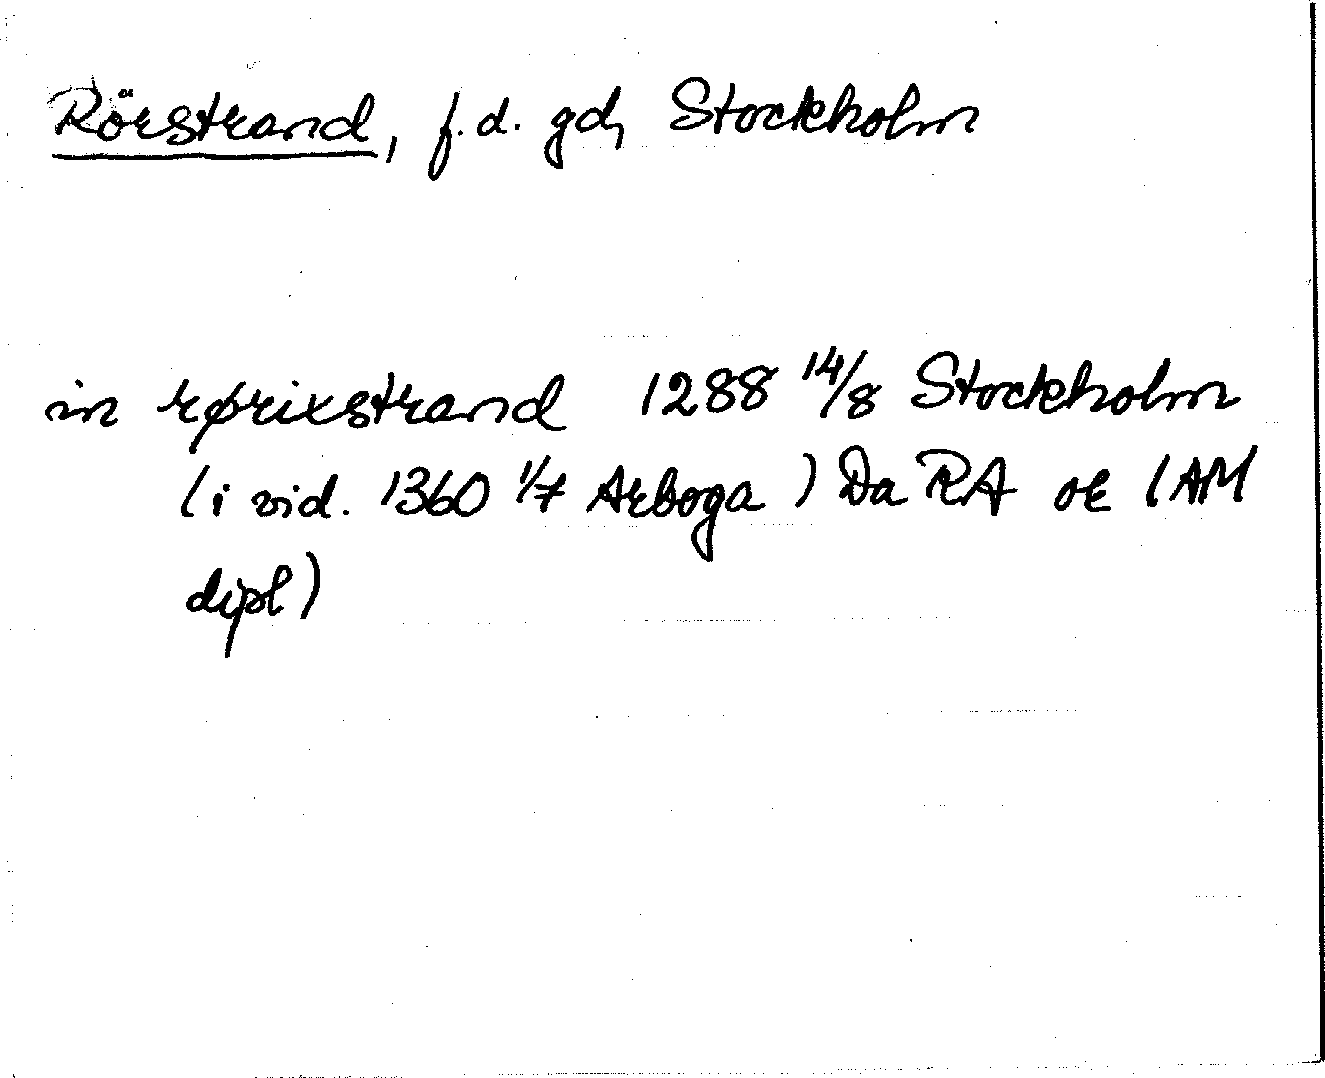 Rörstrand, f.d. gd, Stockholm
in rørixstrand 1288 14/8 Stockholm
(i vid. 1360 1/7 Arboga) Da RA or (AM
dipl)